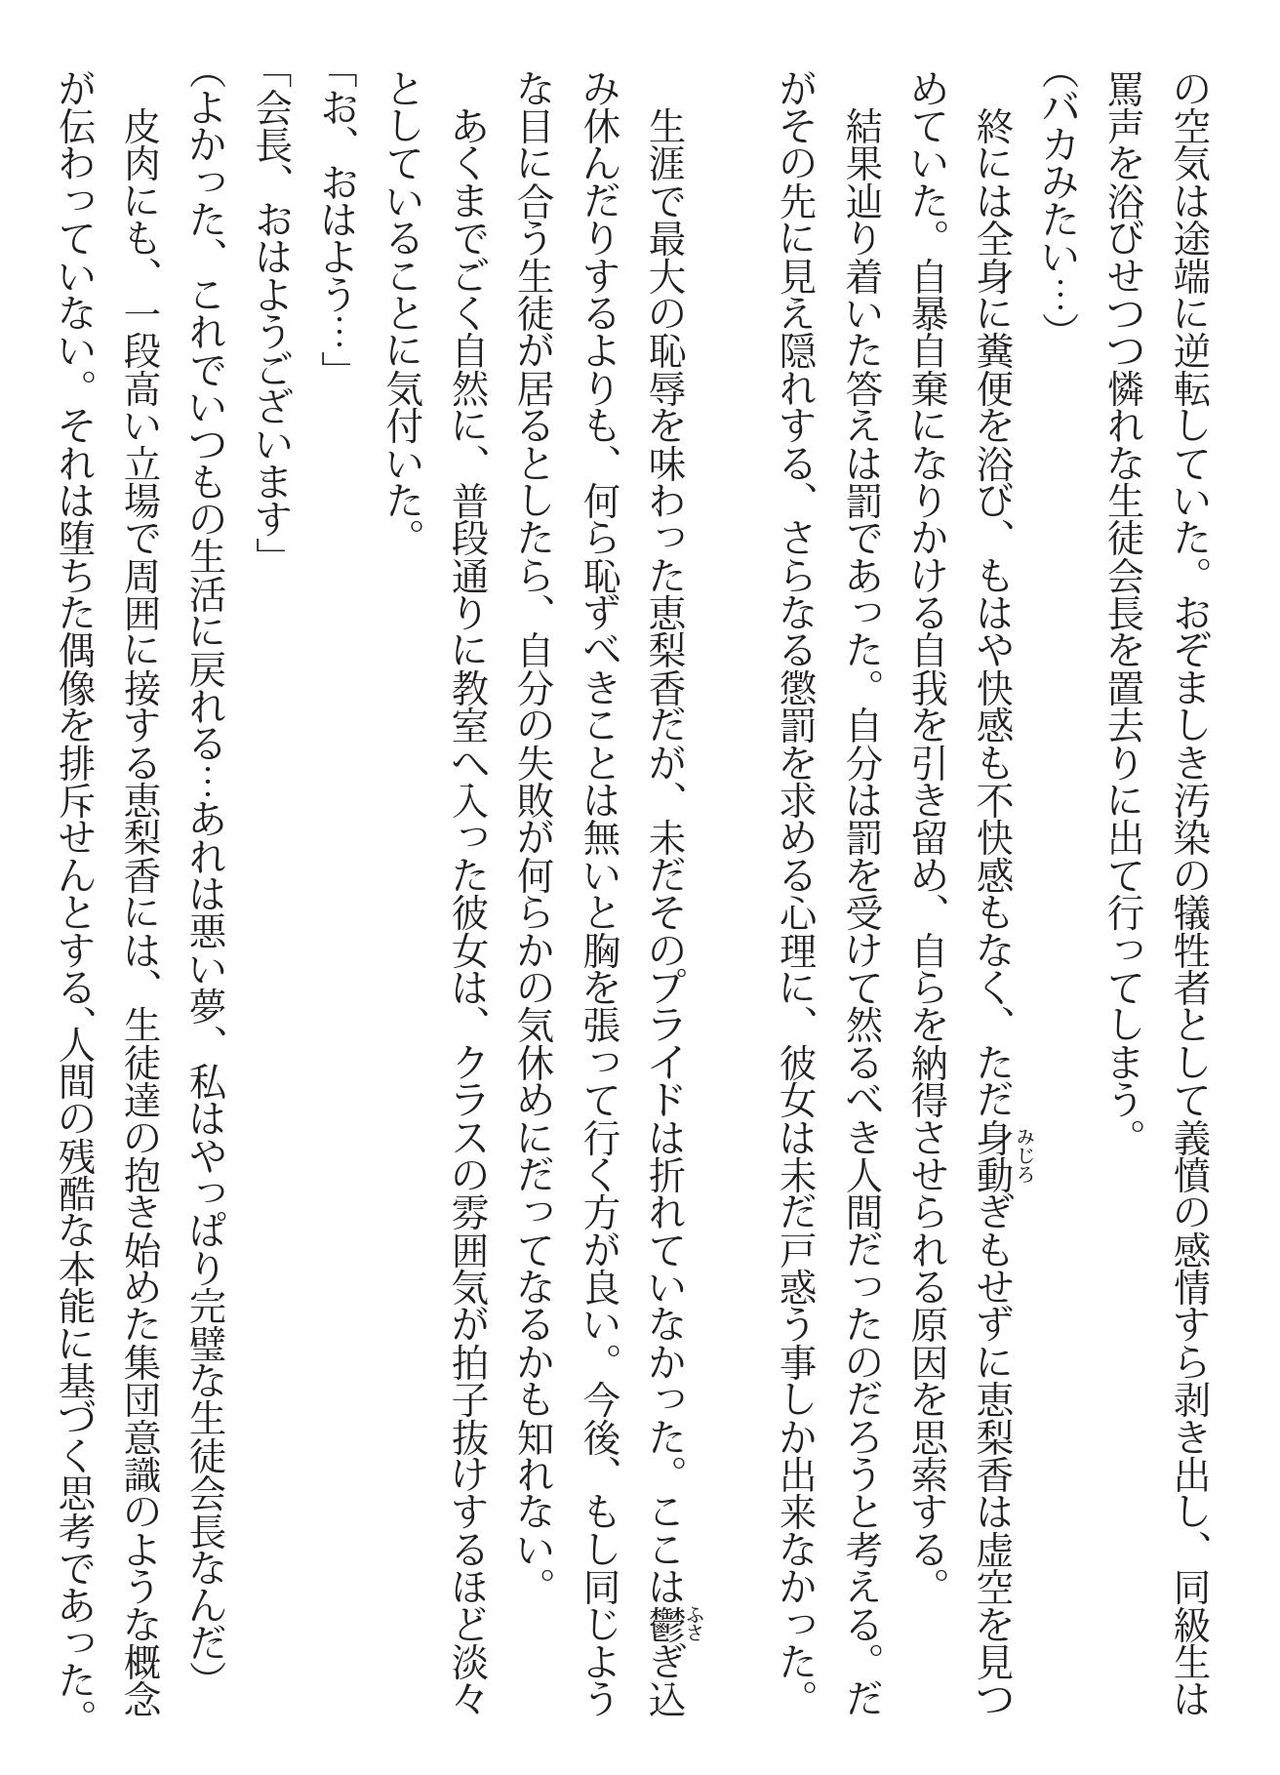 の空気は途端に逆転していた。おぞましき汚染の犠牲者として義憤の感情すら剥き出し、同級生は
罵声を浴びせつつ憐れな生徒会長を置去りに出て行ってしまう。
（バカみたい…）
　終には全身に糞便を浴び、もはや快感も不快感もなく、ただ身動ぎもせずに恵梨香は虚空を見つ
めていた。自暴自棄になりかける自我を引き留め、自らを納得させられる原因を思索する。
　結果辿り着いた答えは罰であった。自分は罰を受けて然るべき人間だったのだろうと考える。だ
がその先に見え隠れする、さらなる懲罰を求める心理に、彼女は未だ戸惑う事しか出来なかった。
　生涯で最大の恥辱を味わった恵梨香だが、未だそのプライドは折れていなかった。ここは鬱ぎ込
み休んだりするよりも、何ら恥ずべきことは無いと胸を張って行く方が良い。今後、もし同じよう
な目に合う生徒が居るとしたら、自分の失敗が何らかの気休めにだってなるかも知れない。
　あくまでごく自然に、普段通りに教室へ入った彼女は、クラスの雰囲気が拍子抜けするほど淡々
としていることに気付いた。
「お、おはよう…」
「会長、おはようございます」
（よかった、これでいつもの生活に戻れる…あれは悪い夢、私はやっぱり完璧な生徒会長なんだ）
　皮肉にも、一段高い立場で周囲に接する恵梨香には、生徒達の抱き始めた集団意識のような概念
が伝わっていない。それは堕ちた偶像を排斥せんとする、人間の残酷な本能に基づく思考であった。
みじろ
ふさ